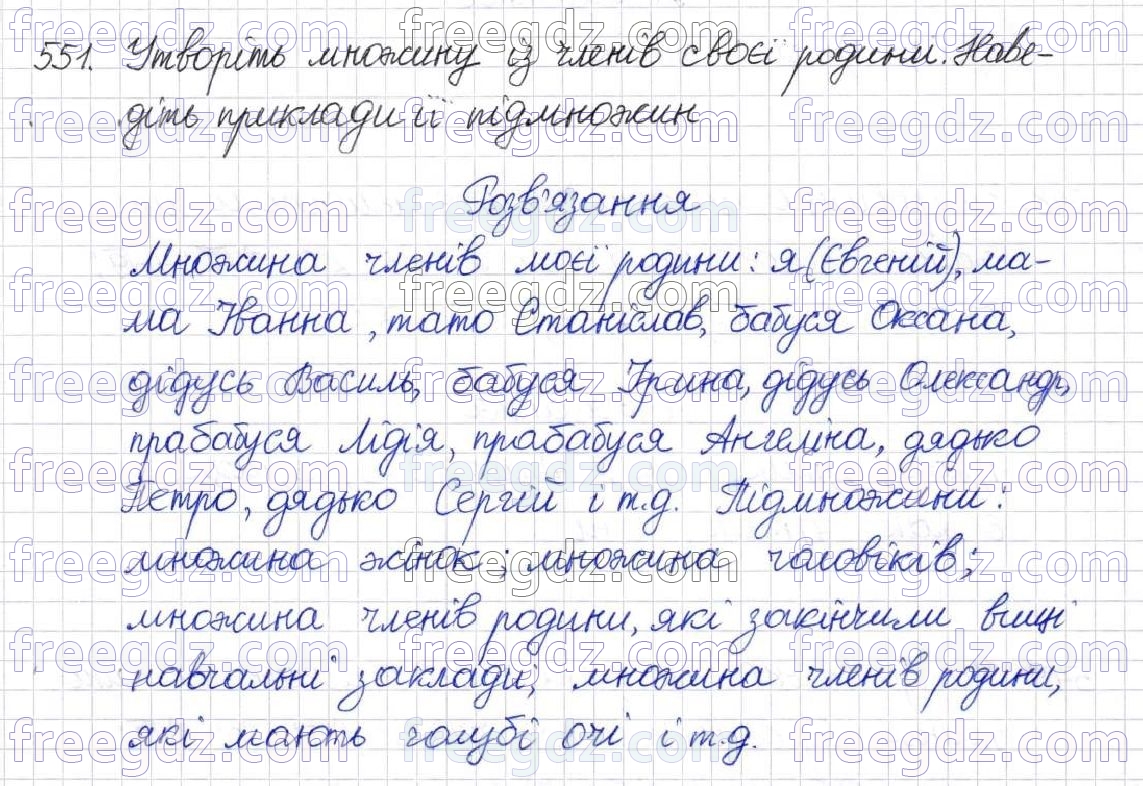 551. Утворіть множину із членів своєї родини. Наве-
діть приклади її підмножин
Розв'язання
Множина членів моєї родини: я (Євгеній), ма-
ма Іванна, тато Станіслав, бабуся Оксана,
дідусь Василь, бабуся Ірина, дідусь Олександр,
прабабуся Лідія, прабабуся Ангеліна, дядько
Петро, дядько Сергій і т.д. Підмножини:
множина жінок; множина чоловіків;
множина членів родини, які закінчили вищі
навчальні заклади; множина членів родини,
які мають голубі очі і т.д.